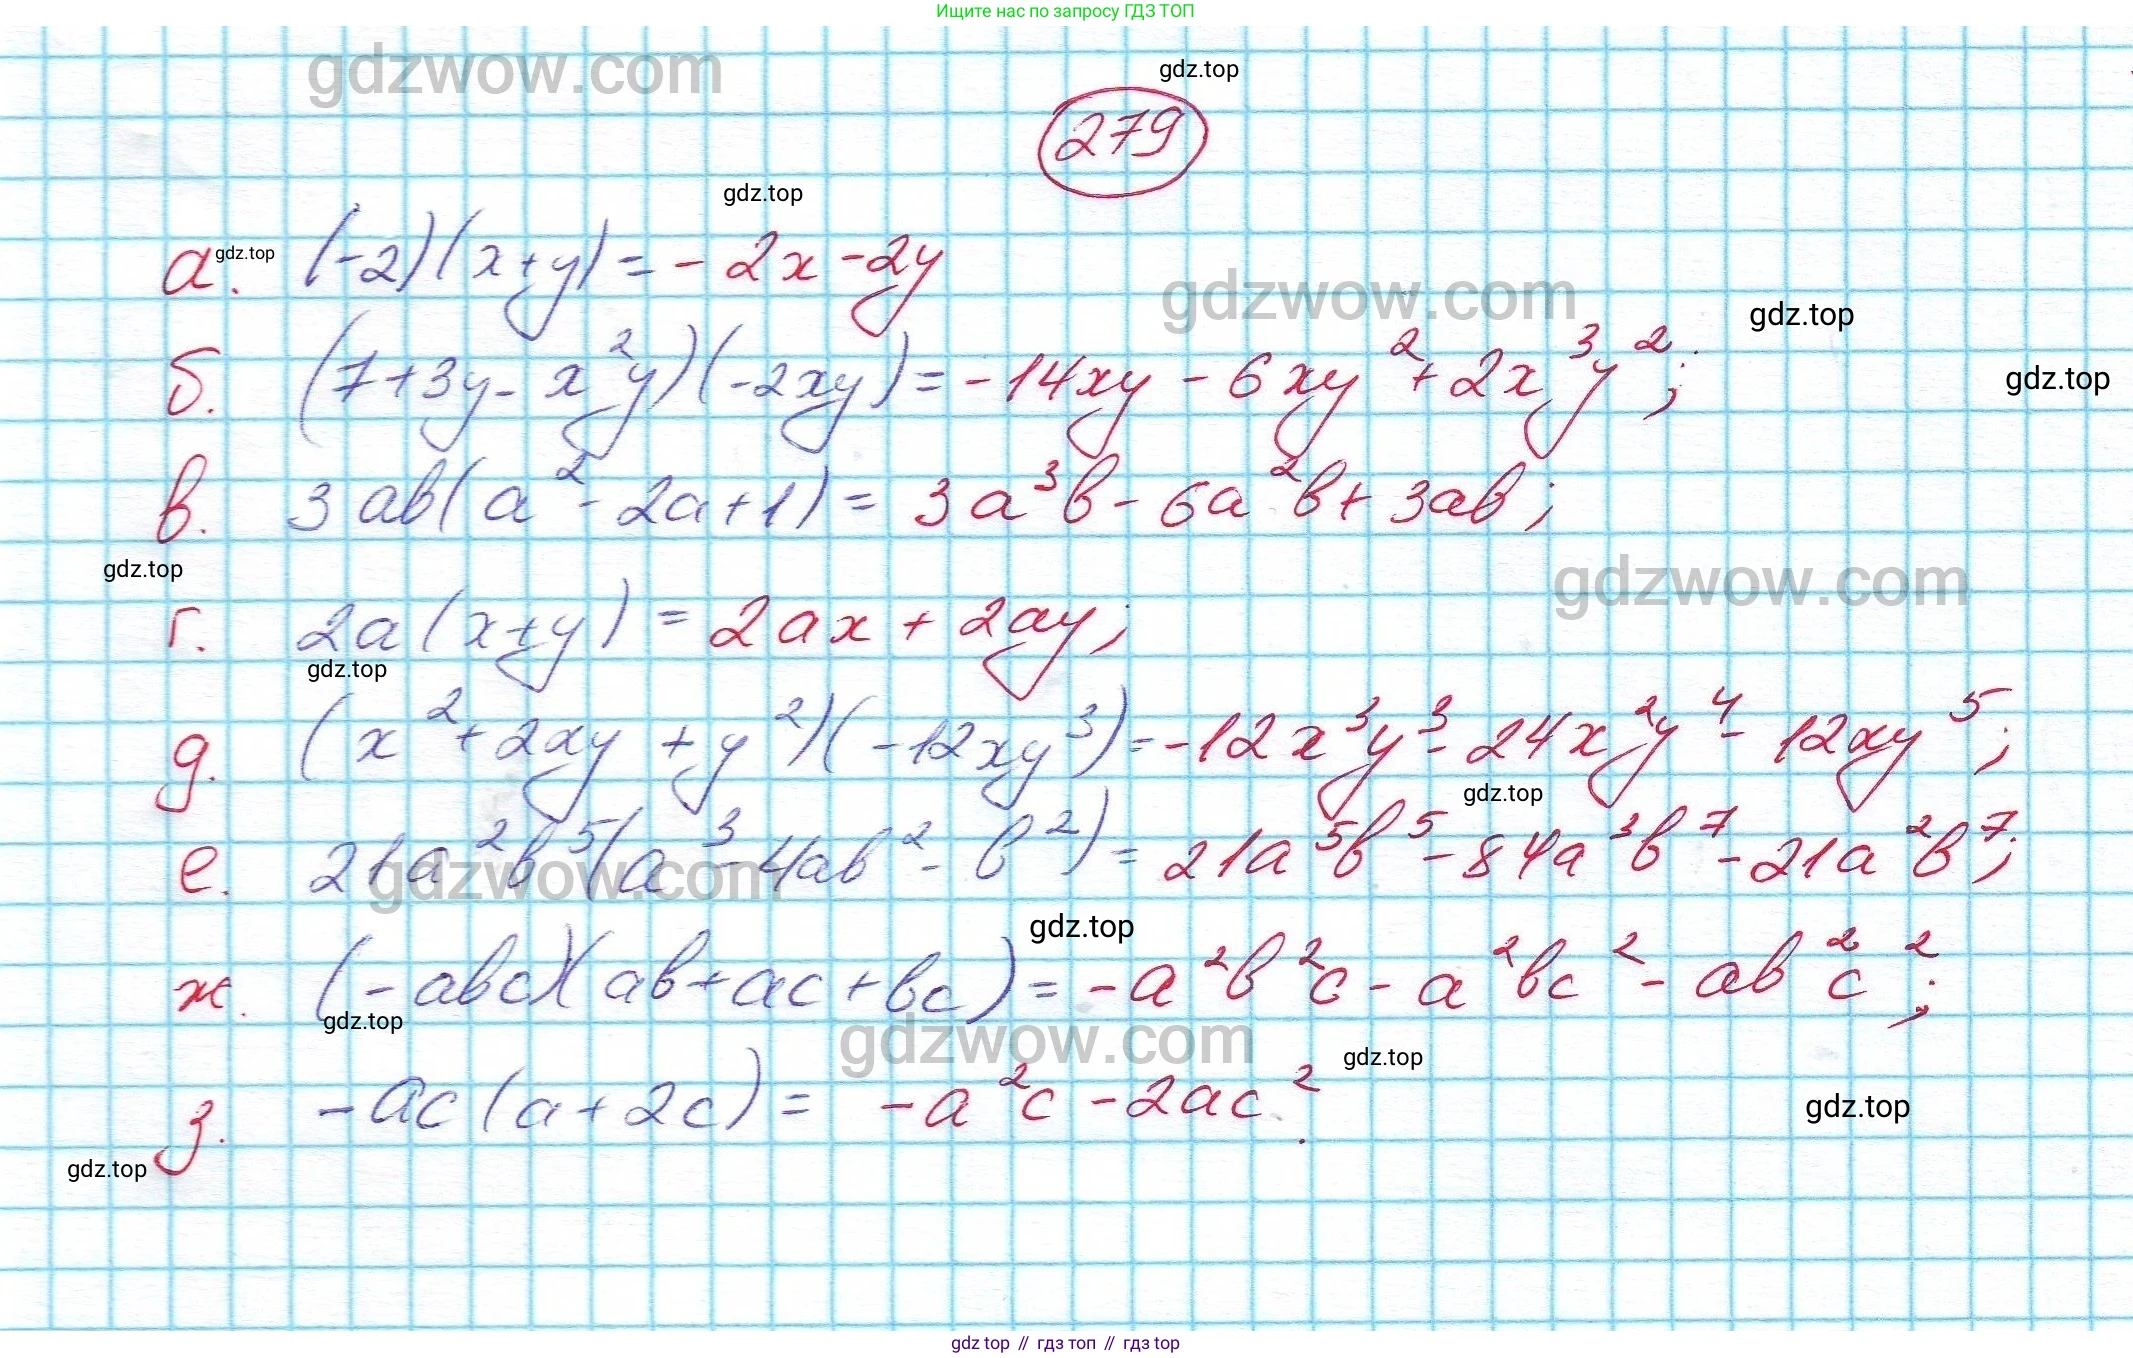 Ищите нас по запросу ГДЗ ТОП
gdzwow.com
gdz.top
279
gdz.top
а. gdz.top (-2)(x+y) = -2x - 2y
gdzwow.com
gdz.top
б. (7+3y-x²y)(-2xy) = -14xy - 6xy² + 2x³y²;
gdz.top
в. 3ab(a²-2a+1) = 3a³b - 6a²b + 3ab;
gdz.top
gdzwow.com
г. 2a(x+y) = 2ax + 2ay;
gdz.top
д. (x²+2xy+y²)(-12xy³) = -12x³y³ - 24x²y⁴ - 12xy⁵;
gdz.top
е. 21a²b⁵(a³-4ab²-b²) = 21a⁵b⁵ - 84a³b⁷ - 21a²b⁷;
gdzwow.com
gdz.top
ж. (-abc)(ab+ac+bc) = -a²b²c - a²bc² - ab²c²;
gdz.top
gdzwow.com
gdz.top
з. -ac(a+2c) = -a²c - 2ac².
gdz.top
gdz.top
gdz top // гдз топ // гдз top